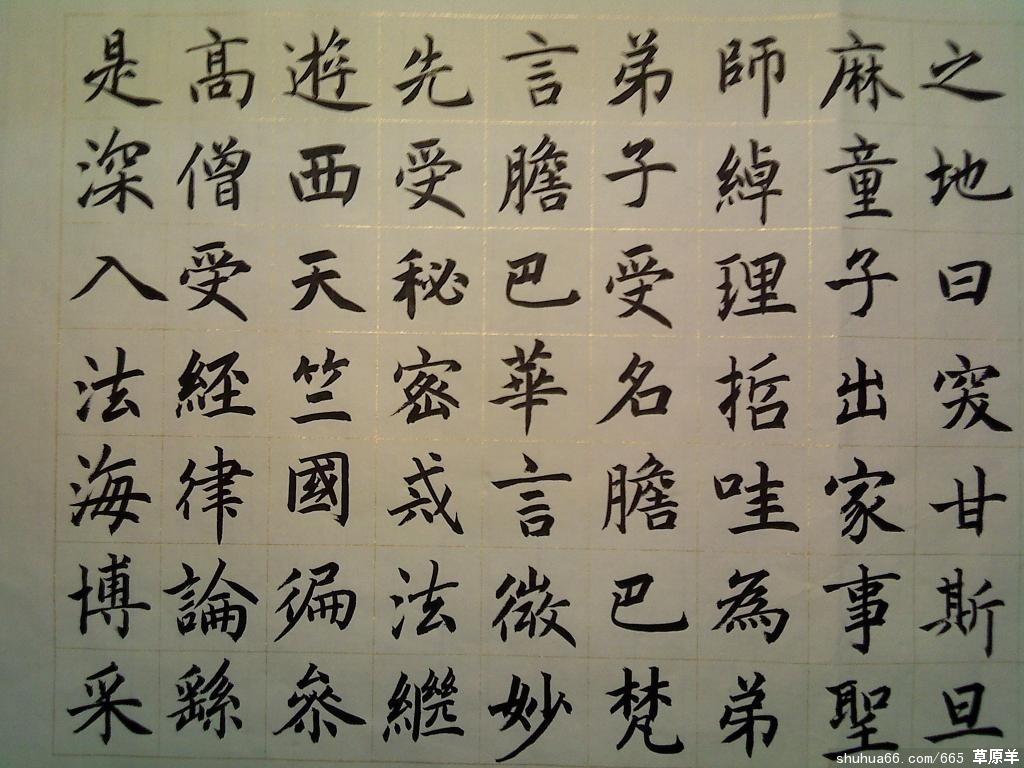 之地曰突甘斯旦
麻童子出家事聖
師綽理哲哇為弟
弟子受名膽巴梵
言膽巴華言微妙
先受秘密戒法繼
遊西天竺國徧參
高僧受經律論繇
是深入法海博采
shuhua66.com/665 草原羊